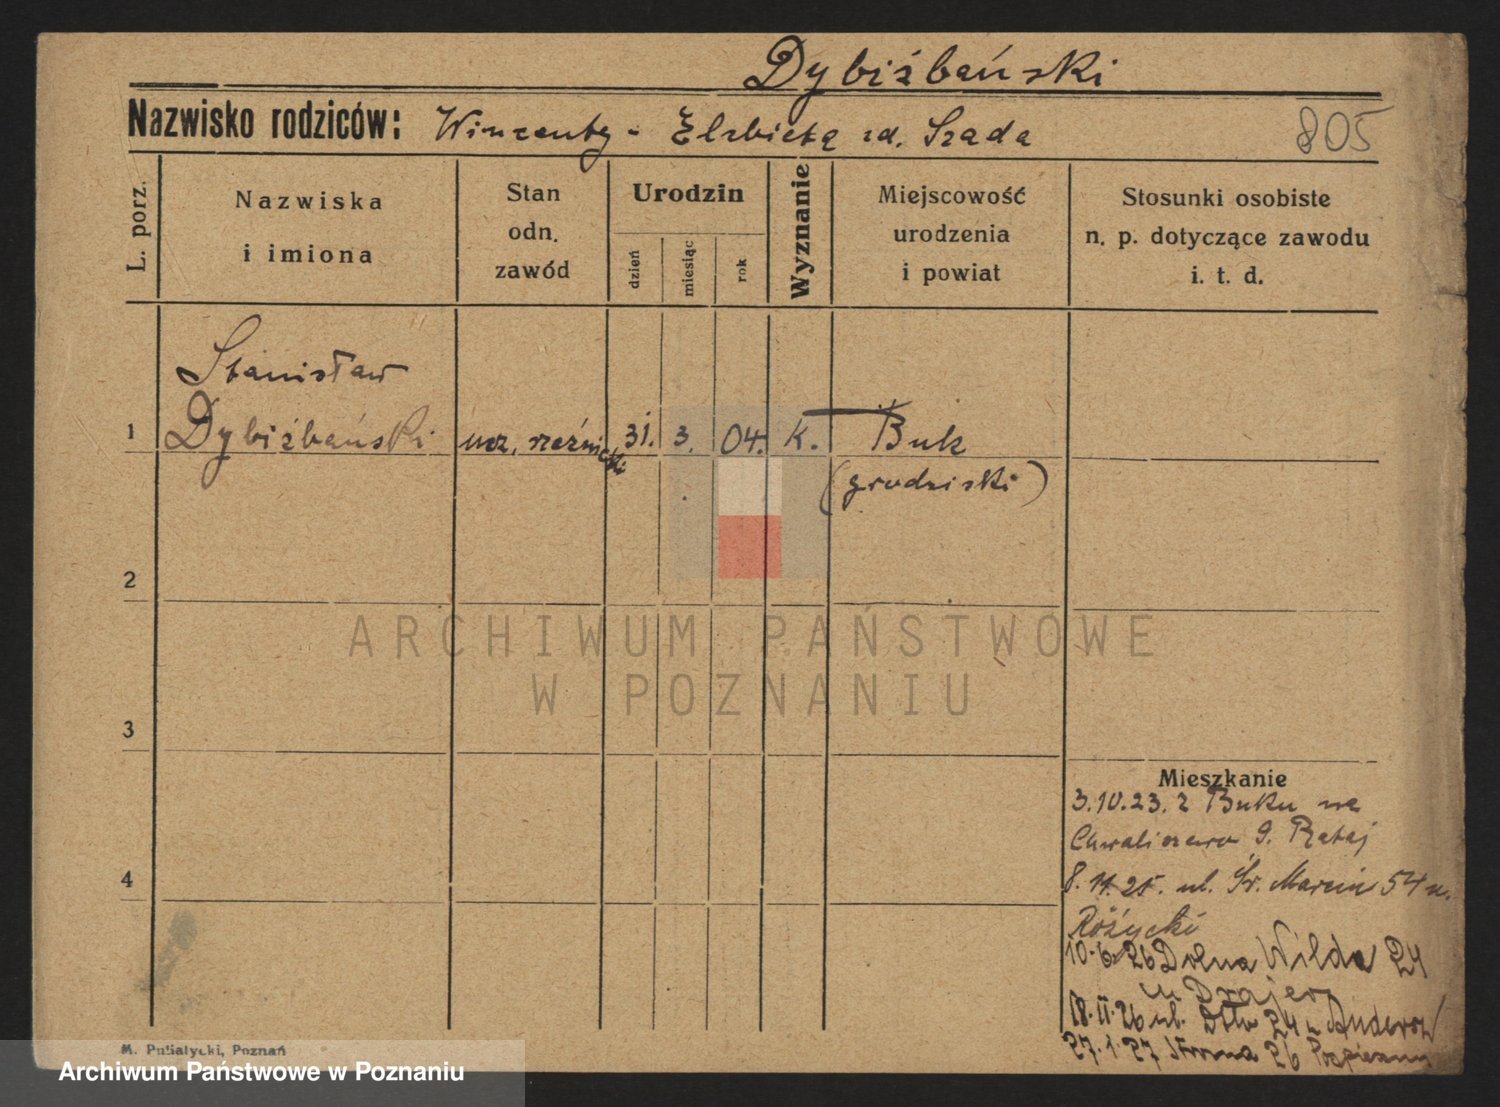 Dybiżbański
Nazwisko rodziców: Wincenty - Elżbieta zd. Szada
805
L. porz.
Nazwiska
i imiona
Stan
odn.
zawód
Urodzin
dzień
miesiąc
rok
Wyznanie
Miejscowość
urodzenia
i powiat
Stosunki osobiste
n. p. dotyczące zawodu
i. t. d.
Stanisław
1 Dybiżbański ucz. rzeźnicki 31. 3. 04. k. Buk
(grodziski)
2
ARCHIWUM PAŃSTWOWE
W POZNANIU
3
4
Mieszkanie
3.10.23. z Buku na
Chwaliszewo 9. Rataj
8. 11. 25. ul. Św. Marcin 54 u.
Różycki
10.6.26 Dolna Wilda 24
u
18.II.26 ul. 24 u
27.1.27 26
M. Putiatycki, Poznań
Archiwum Państwowe w Poznaniu